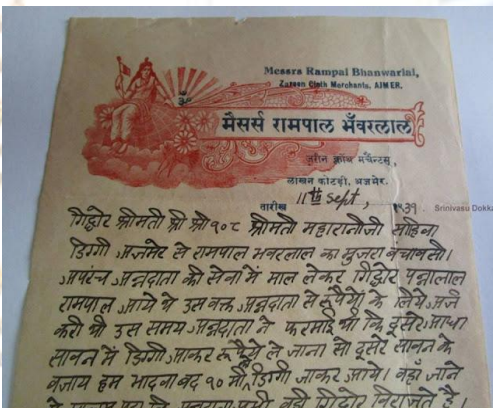 Messrs Rampal Bhanwarlal,
Zareen Cloth Merchants, AJMER.
ॐ
मैसर्स रामपाल भँवरलाल
ज़रीन क्लौथ मर्चेन्टस्,
लाखन कोटड़ी, अजमेर.
तारीख 11th Sept, १९३९
Srinivasu Dokka
गिद्धोर श्रीमती श्री श्री १०८ श्रीमती महारानीजी साहिबा
डिग्गी अजमेर से रामपाल भवरलाल का मुजरा बंचावसी।
अपरंच अन्नदाता की सेवा में माल लेकर गिद्धोर पन्नालाल
रामपाल आये थे उस वक्त अन्नदाता से रूपैयों के लिये अर्ज
करी थी उस समय अन्नदाता ने फरमाई थी कि दूसरे आधा
सावन में डिग्गी आकर रूपैये ले जाना सो दूसरे सावन के
बजाय हम भादवा बद १० मी डिग्गी जाकर आये। वहाँ जाने
विराजते है।